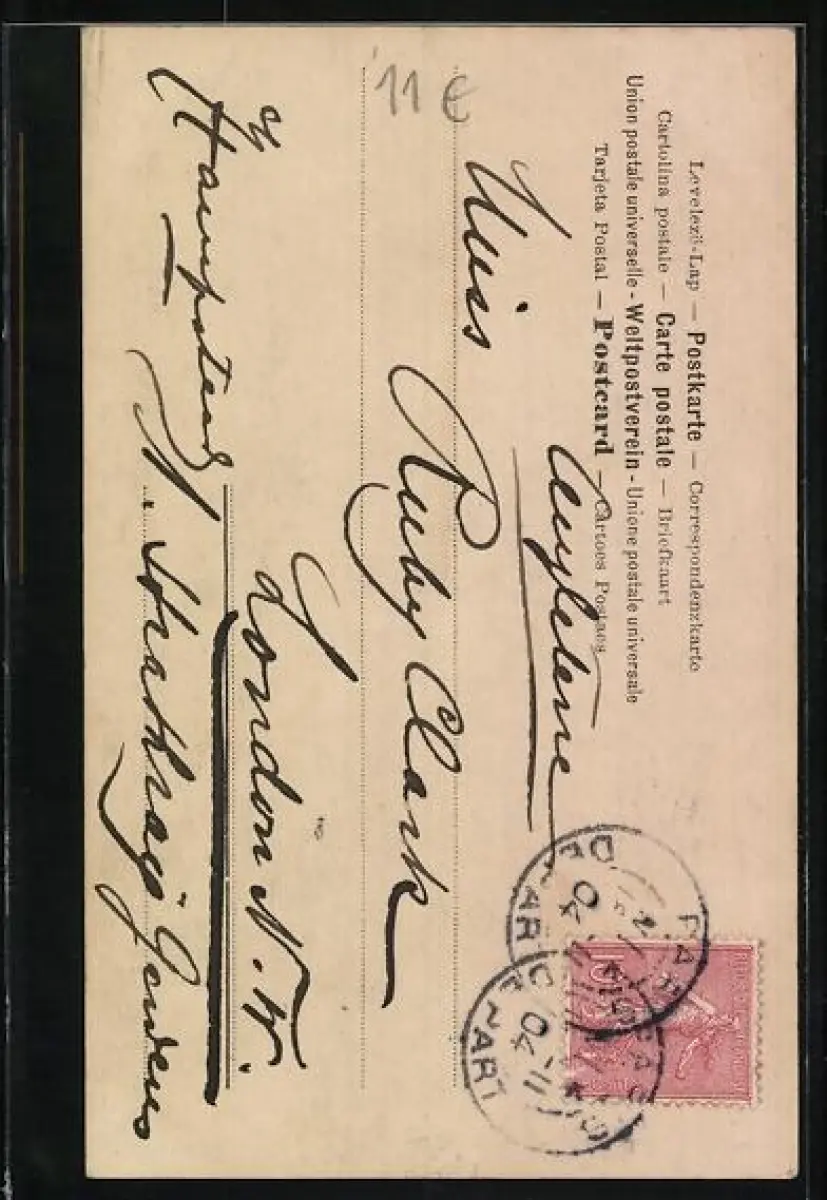 Levelező-Lap — Postkarte — Correspondenzkarte
Cartolina postale — Carte postale — Briefkaart
Union postale universelle - Weltpostverein - Unione postale universale
Tarjeta Postal — Postcard — Cartoes Postaes
Angleterre
11 €
Miss
Ruby Clark
London N.W.
Hampstead
PARIS
04